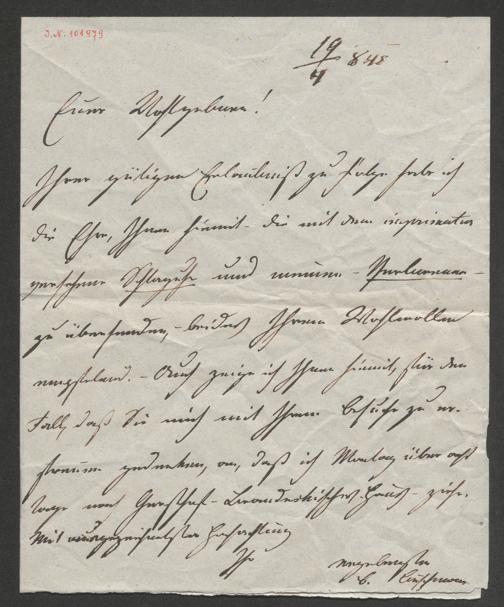 J. N. 101979
19/4 848
Euer Wohlgeboren!
Ihrer gütigen Erlaubniß zu Folge habe ich
die Ehre, Ihnen hiemit die mit dem imprimatur
versehene Schlaguhr und meinen
zu übersenden, – beides Ihrem Wohlwollen
empfehlend. – Auch zeige ich Ihnen hiemit, für den
Fall, daß Sie mich mit Ihrem Besuche zu er-
freuen gedenken, an, daß ich Montag über acht
Tage nach – ziehe.
Mit ausgezeichnetster Hochachtung
Ihr ergebenster